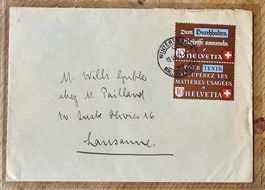 WINTERTHUR
zum Durchhalten
Altstoffe sammeln
10 HELVETIA
POUR TENIR
RÉCUPÉREZ LES
MATIÈRES USAGÉES
10 HELVETIA
M. Willi
chez M. Paillard
Av. Juste Olivier 16
Lausanne.